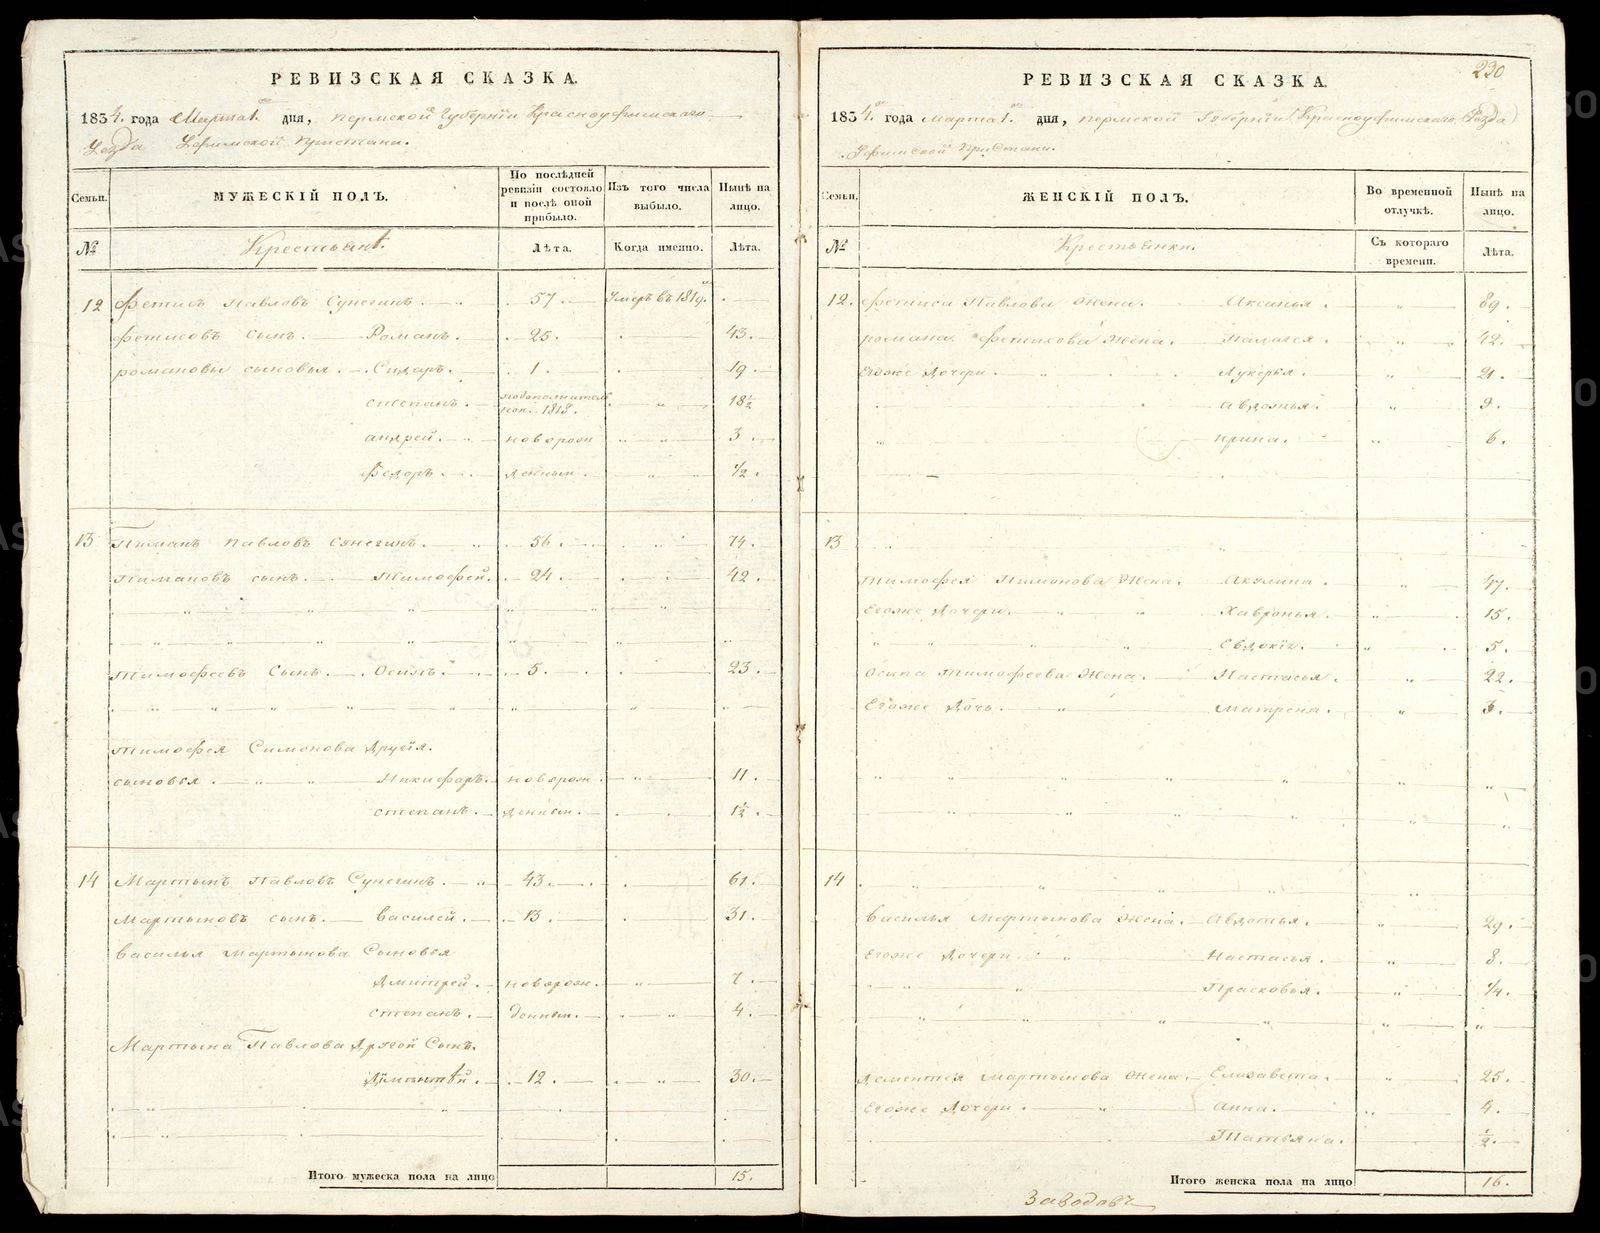 РЕВИЗСКАЯ СКАЗКА.
1834. года Марта 1. дня, Пермской Губернiи Красноуфимскаго
Уезда Уфимской Пристани.
Семьи.
МУЖЕСКIЙ ПОЛЪ.
По послѣдней ревизiи состояло и послѣ оной прибыло.
Изъ того числа выбыло.
Нынѣ на лицо.
№
Крестьянѣ.
Лѣта.
Когда именно.
Лѣта.
12 Фетисъ Павловъ Сунегинъ. 57. Умеръ в 1819.
Фетисовъ сынъ. Романъ. 25. 43.
Романовы сыновья. Сидаръ. 1. 19.
Степанъ. 1818. 18½
Андрей. новорож 3.
Федоръ. денным. ½.
13 Пиманъ Павловъ Сунегинъ. 56. 74.
Пимановъ сынъ. Тимофей. 24. 42.
Тимофеевъ Сынъ. Осипъ. 5. 23.
Тимофея Симонова Другiя.
сыновья. Никифоръ. новорож. 11.
Степанъ. денным. 1½.
14 Мартынъ Павловъ Сунегинъ. 43. 61.
Мартыновъ сынъ. Василей. 13. 31.
Василья Мартынова Сыновья
Дмитрей. новорож. 7.
степанъ. денным. 4.
Мартына Павлова Другой Сынъ.
12. 30.
Итого мужеска пола на лицо 15.
230
РЕВИЗСКАЯ СКАЗКА.
1834. года Марта 1. дня, Пермской Губернiи Красноуфимскаго Уезда
Уфимской Пристани.
Семьи.
ЖЕНСКIЙ ПОЛЪ.
Во временной отлучкѣ.
Нынѣ на лицо.
№
Крестьянки.
Съ котораго времени.
Лѣта.
12. Фетиса Павлова жена. Аксинья. 89.
Романа Фетисова жена. Палагея. 42.
Егоже Дочери. Лукерья. 21.
Авдотья. 9.
Ирина. 6.
13
Тимофея Пимонова жена. Акулина. 47.
Егоже Дочери. Хавронья. 15.
Евдокiя. 5.
Осипа Тимофеева жена. Настасья. 22.
Егоже Дочь. Матрена.
14
Василья Мартынова жена. Авдотья. 29.
Егоже Дочери. Настасья. 8.
Прасковья. ¼.
Дементея Мартынова жена. Елизавета. 25.
Егоже Дочери. Анна. 4.
Татьяна. ½.
Итого женска пола на лицо 16.
Заводовъ